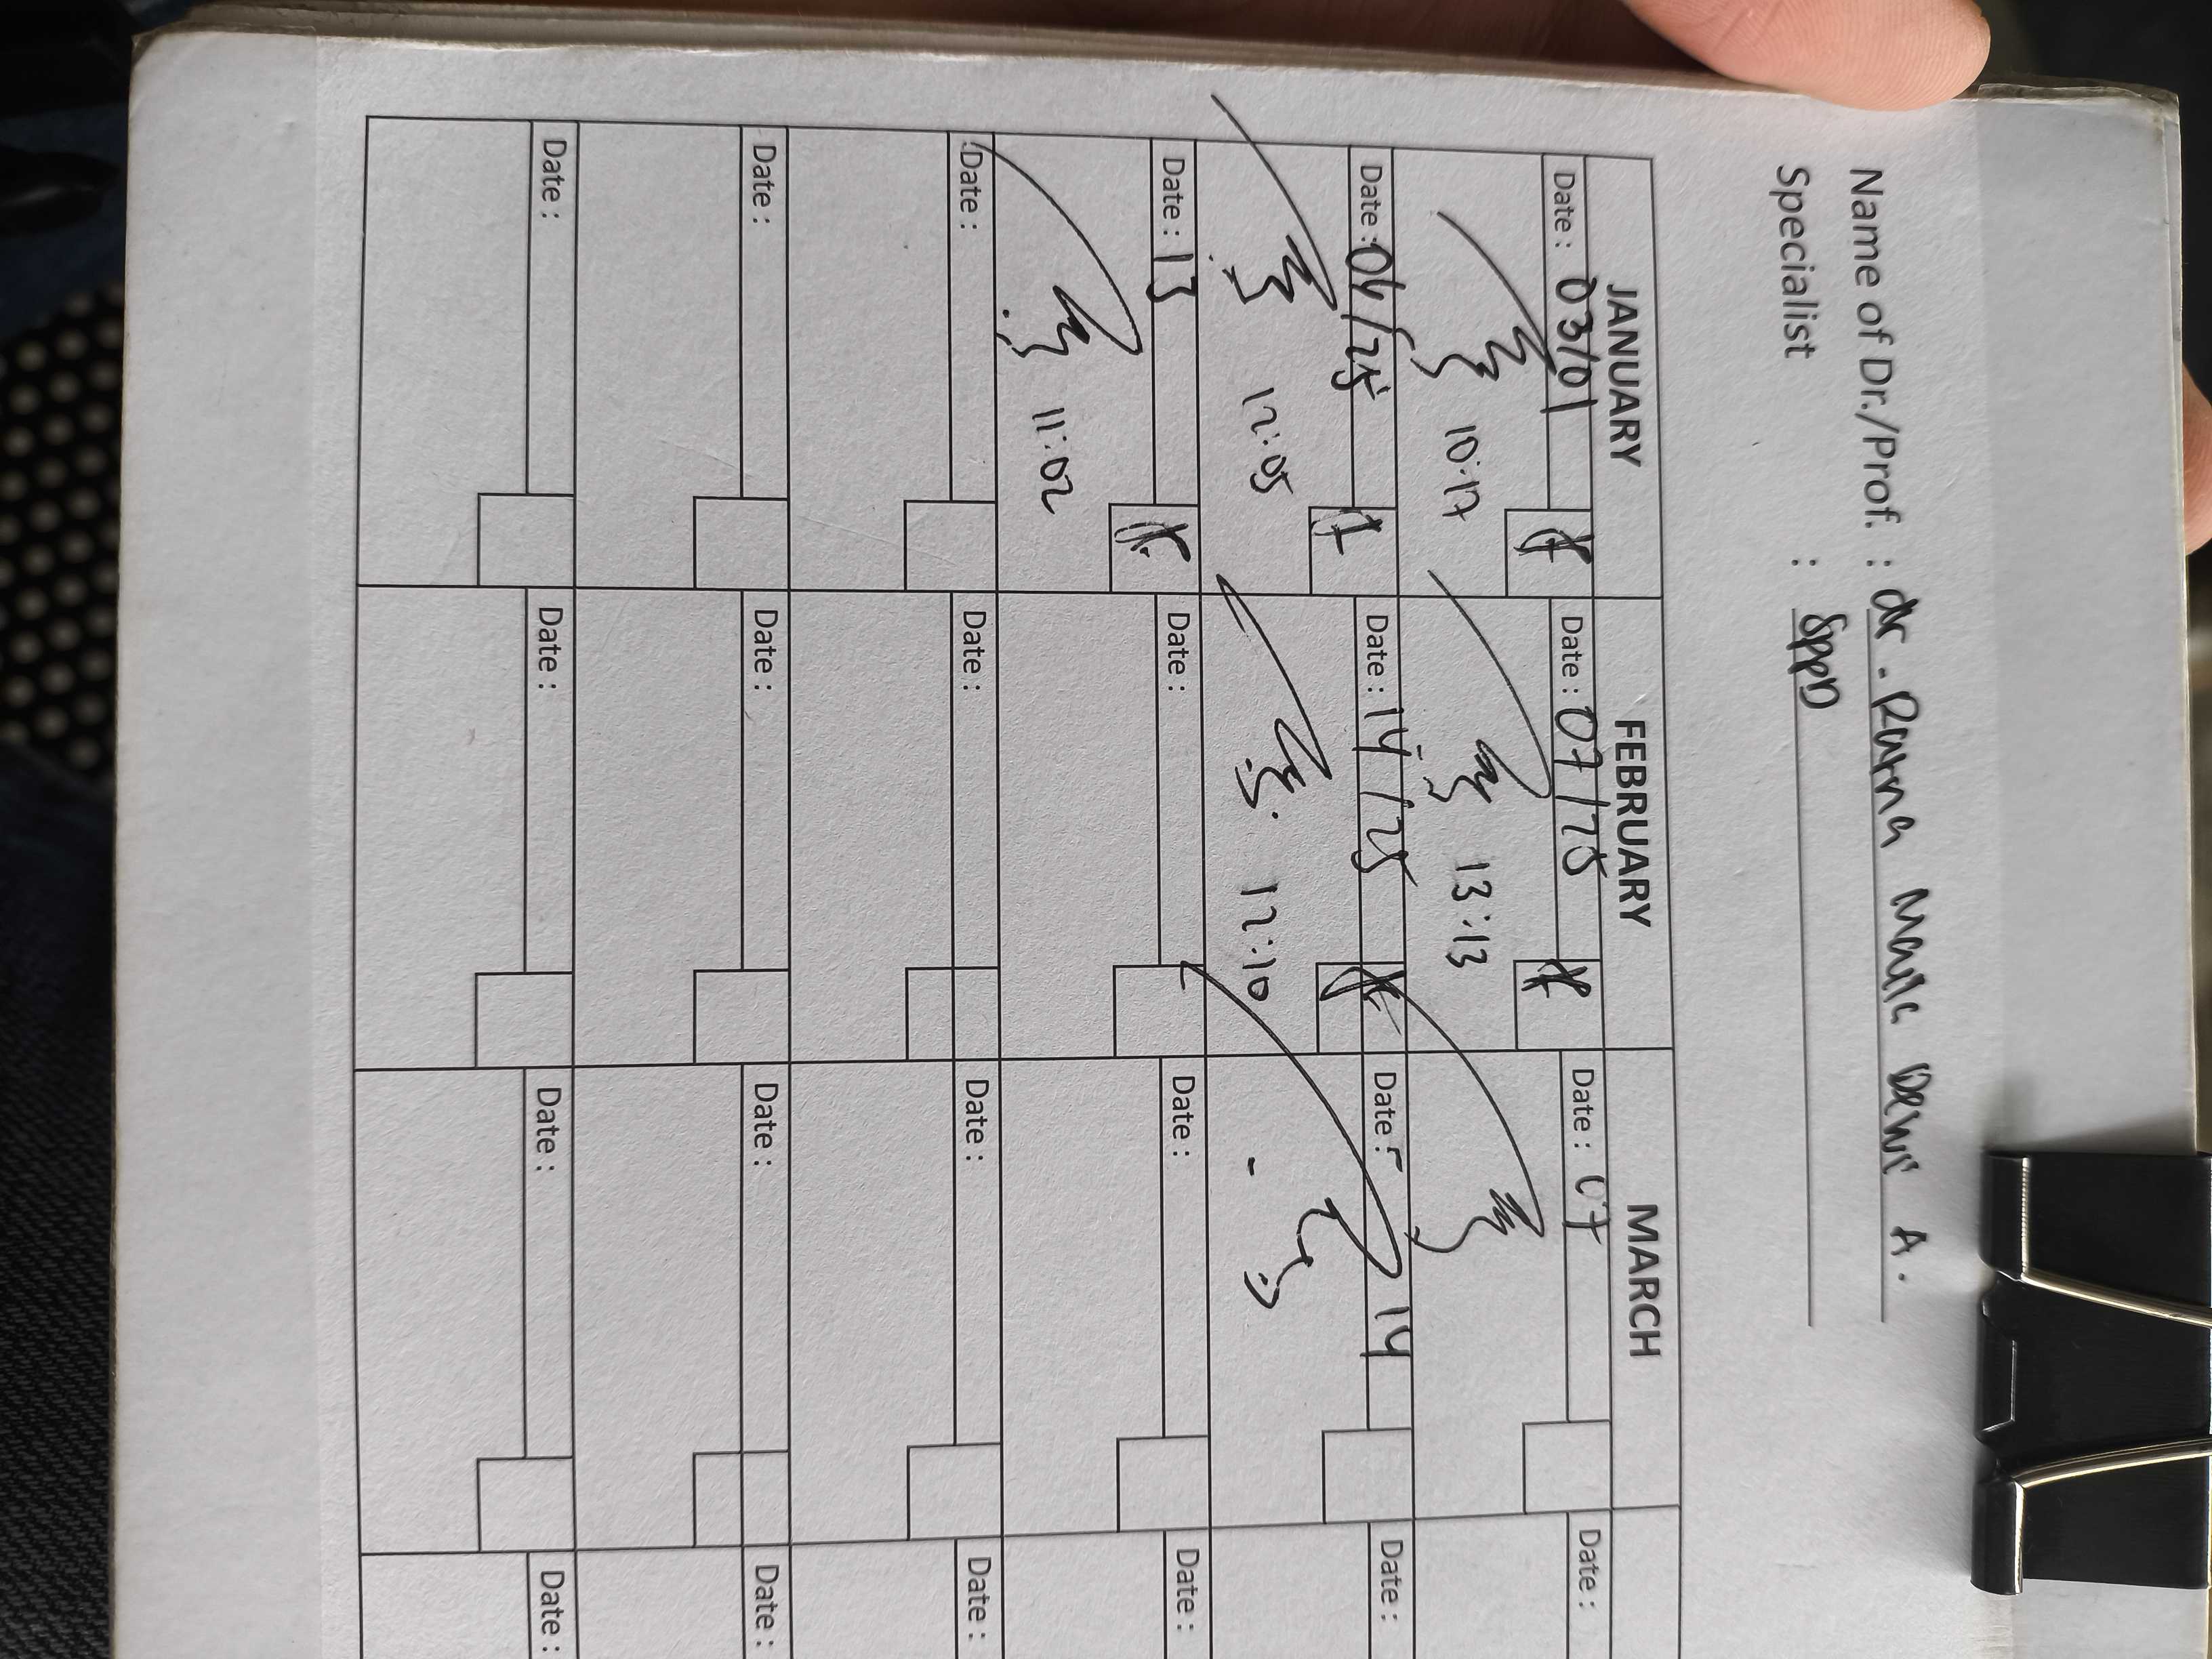 Name of Dr./Prof. : dr. Ratna Maila Dewi A.
Specialist : SppD
JANUARY FEBRUARY MARCH
Date : 03/01 Date : 07/25 Date : 07 Date :
10:17 13:13
Date : 06/25 Date : 14/25 Date : 14 Date :
12:05 12:10
Date : 13 Date : Date : Date :
11:02
Date : Date : Date : Date :
Date : Date : Date : Date :
Date : Date : Date : Date :